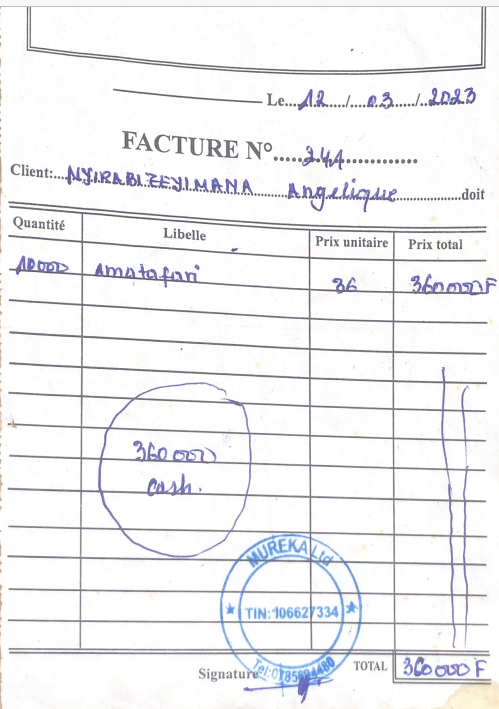 Le....12..../....03..../..2023
FACTURE N°.....241..............
Client:....NYIRABIZEYIMANA Angelique..............doit
Quantité Libelle Prix unitaire Prix total
10000 Amatafari 36 360000F
360000
cash.
MUREKA Ltd
TIN:106627334
Signature TOTAL 360000 F